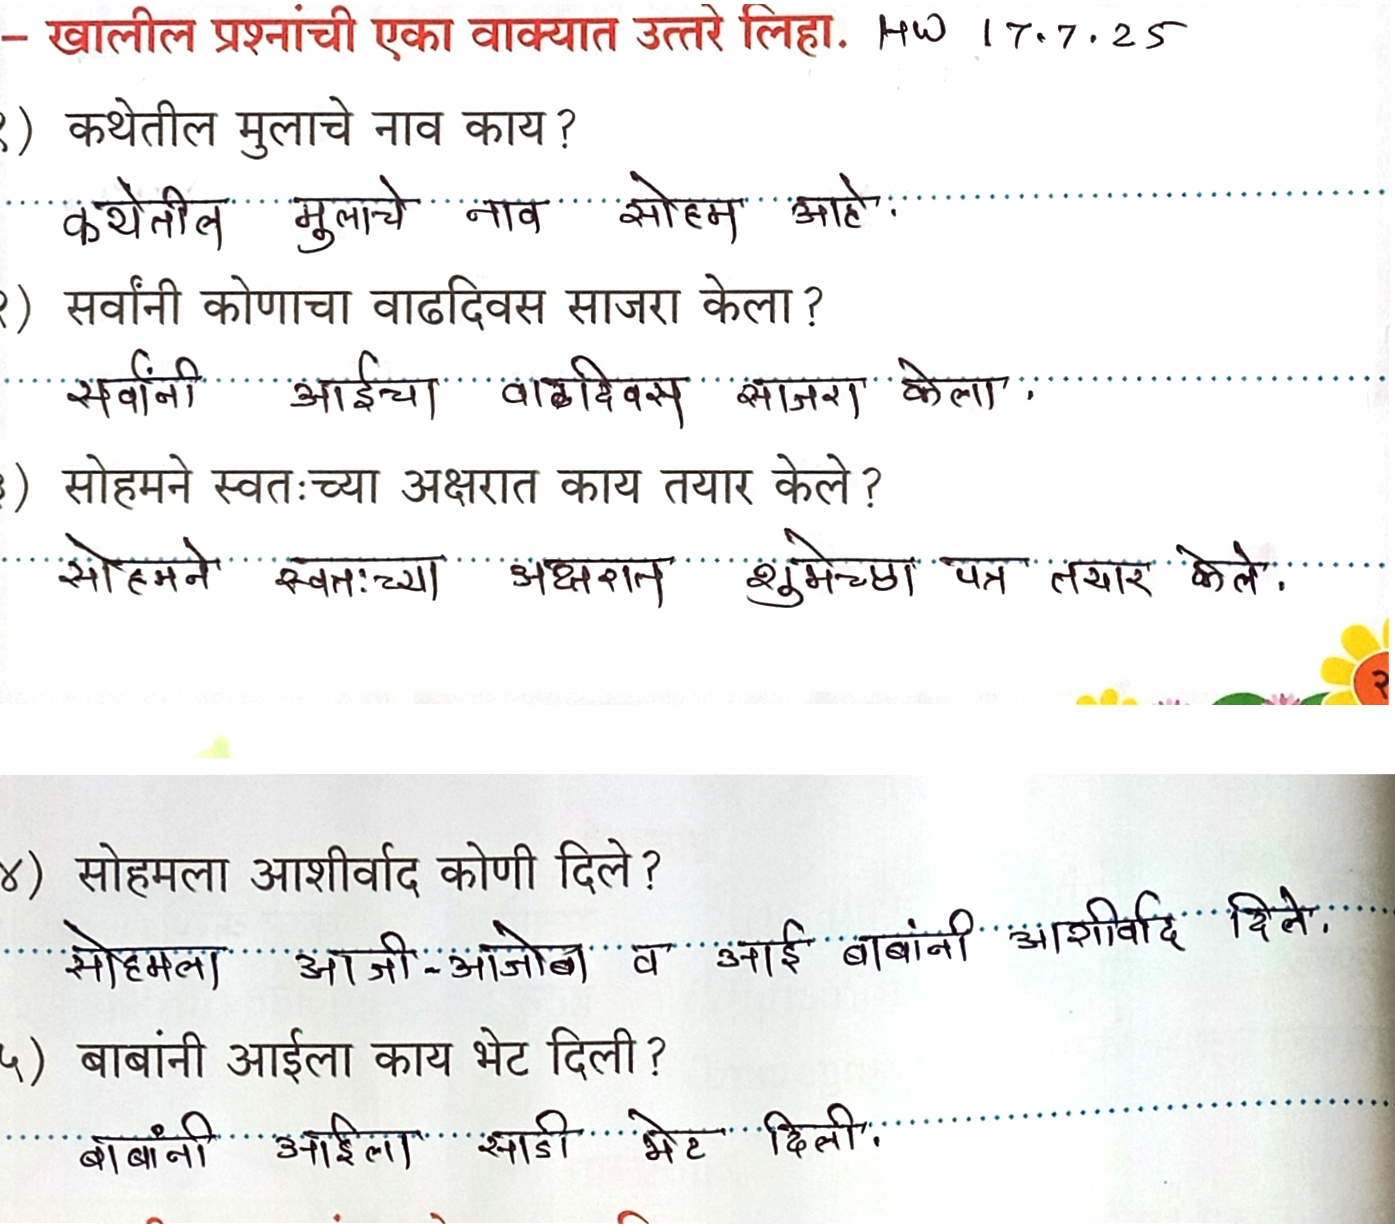 – खालील प्रश्नांची एका वाक्यात उत्तरे लिहा. HW 17.7.25
१) कथेतील मुलाचे नाव काय?
कथेतील मुलाचे नाव सोहम आहे.
२) सर्वांनी कोणाचा वाढदिवस साजरा केला?
सर्वांनी आईचा वाढदिवस साजरा केला.
३) सोहमने स्वतःच्या अक्षरात काय तयार केले?
सोहमने स्वतःच्या अक्षरात शुभेच्छा पत्र तयार केले.
४) सोहमला आशीर्वाद कोणी दिले?
सोहमला आजी-आजोबा व आई बाबांनी आशीर्वाद दिले.
५) बाबांनी आईला काय भेट दिली?
बाबांनी आईला साडी भेट दिली.